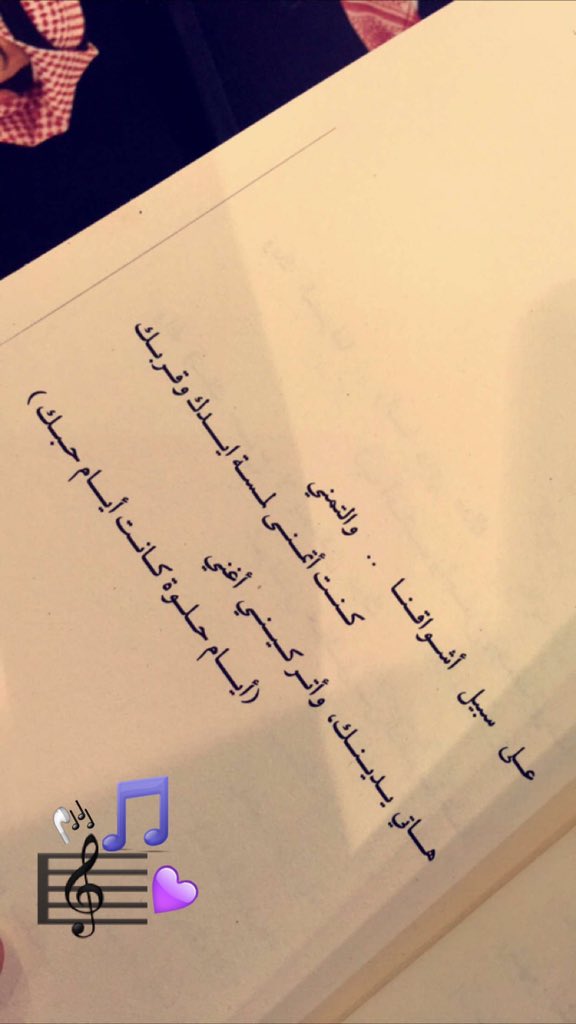 على سبيل أشواقنا .. والتمني
كنت أتمنى لمسة ايدك وقربك
هاتي يدينك، وأتركيني أغني
(أيام حلوة كانت أيام حبك)